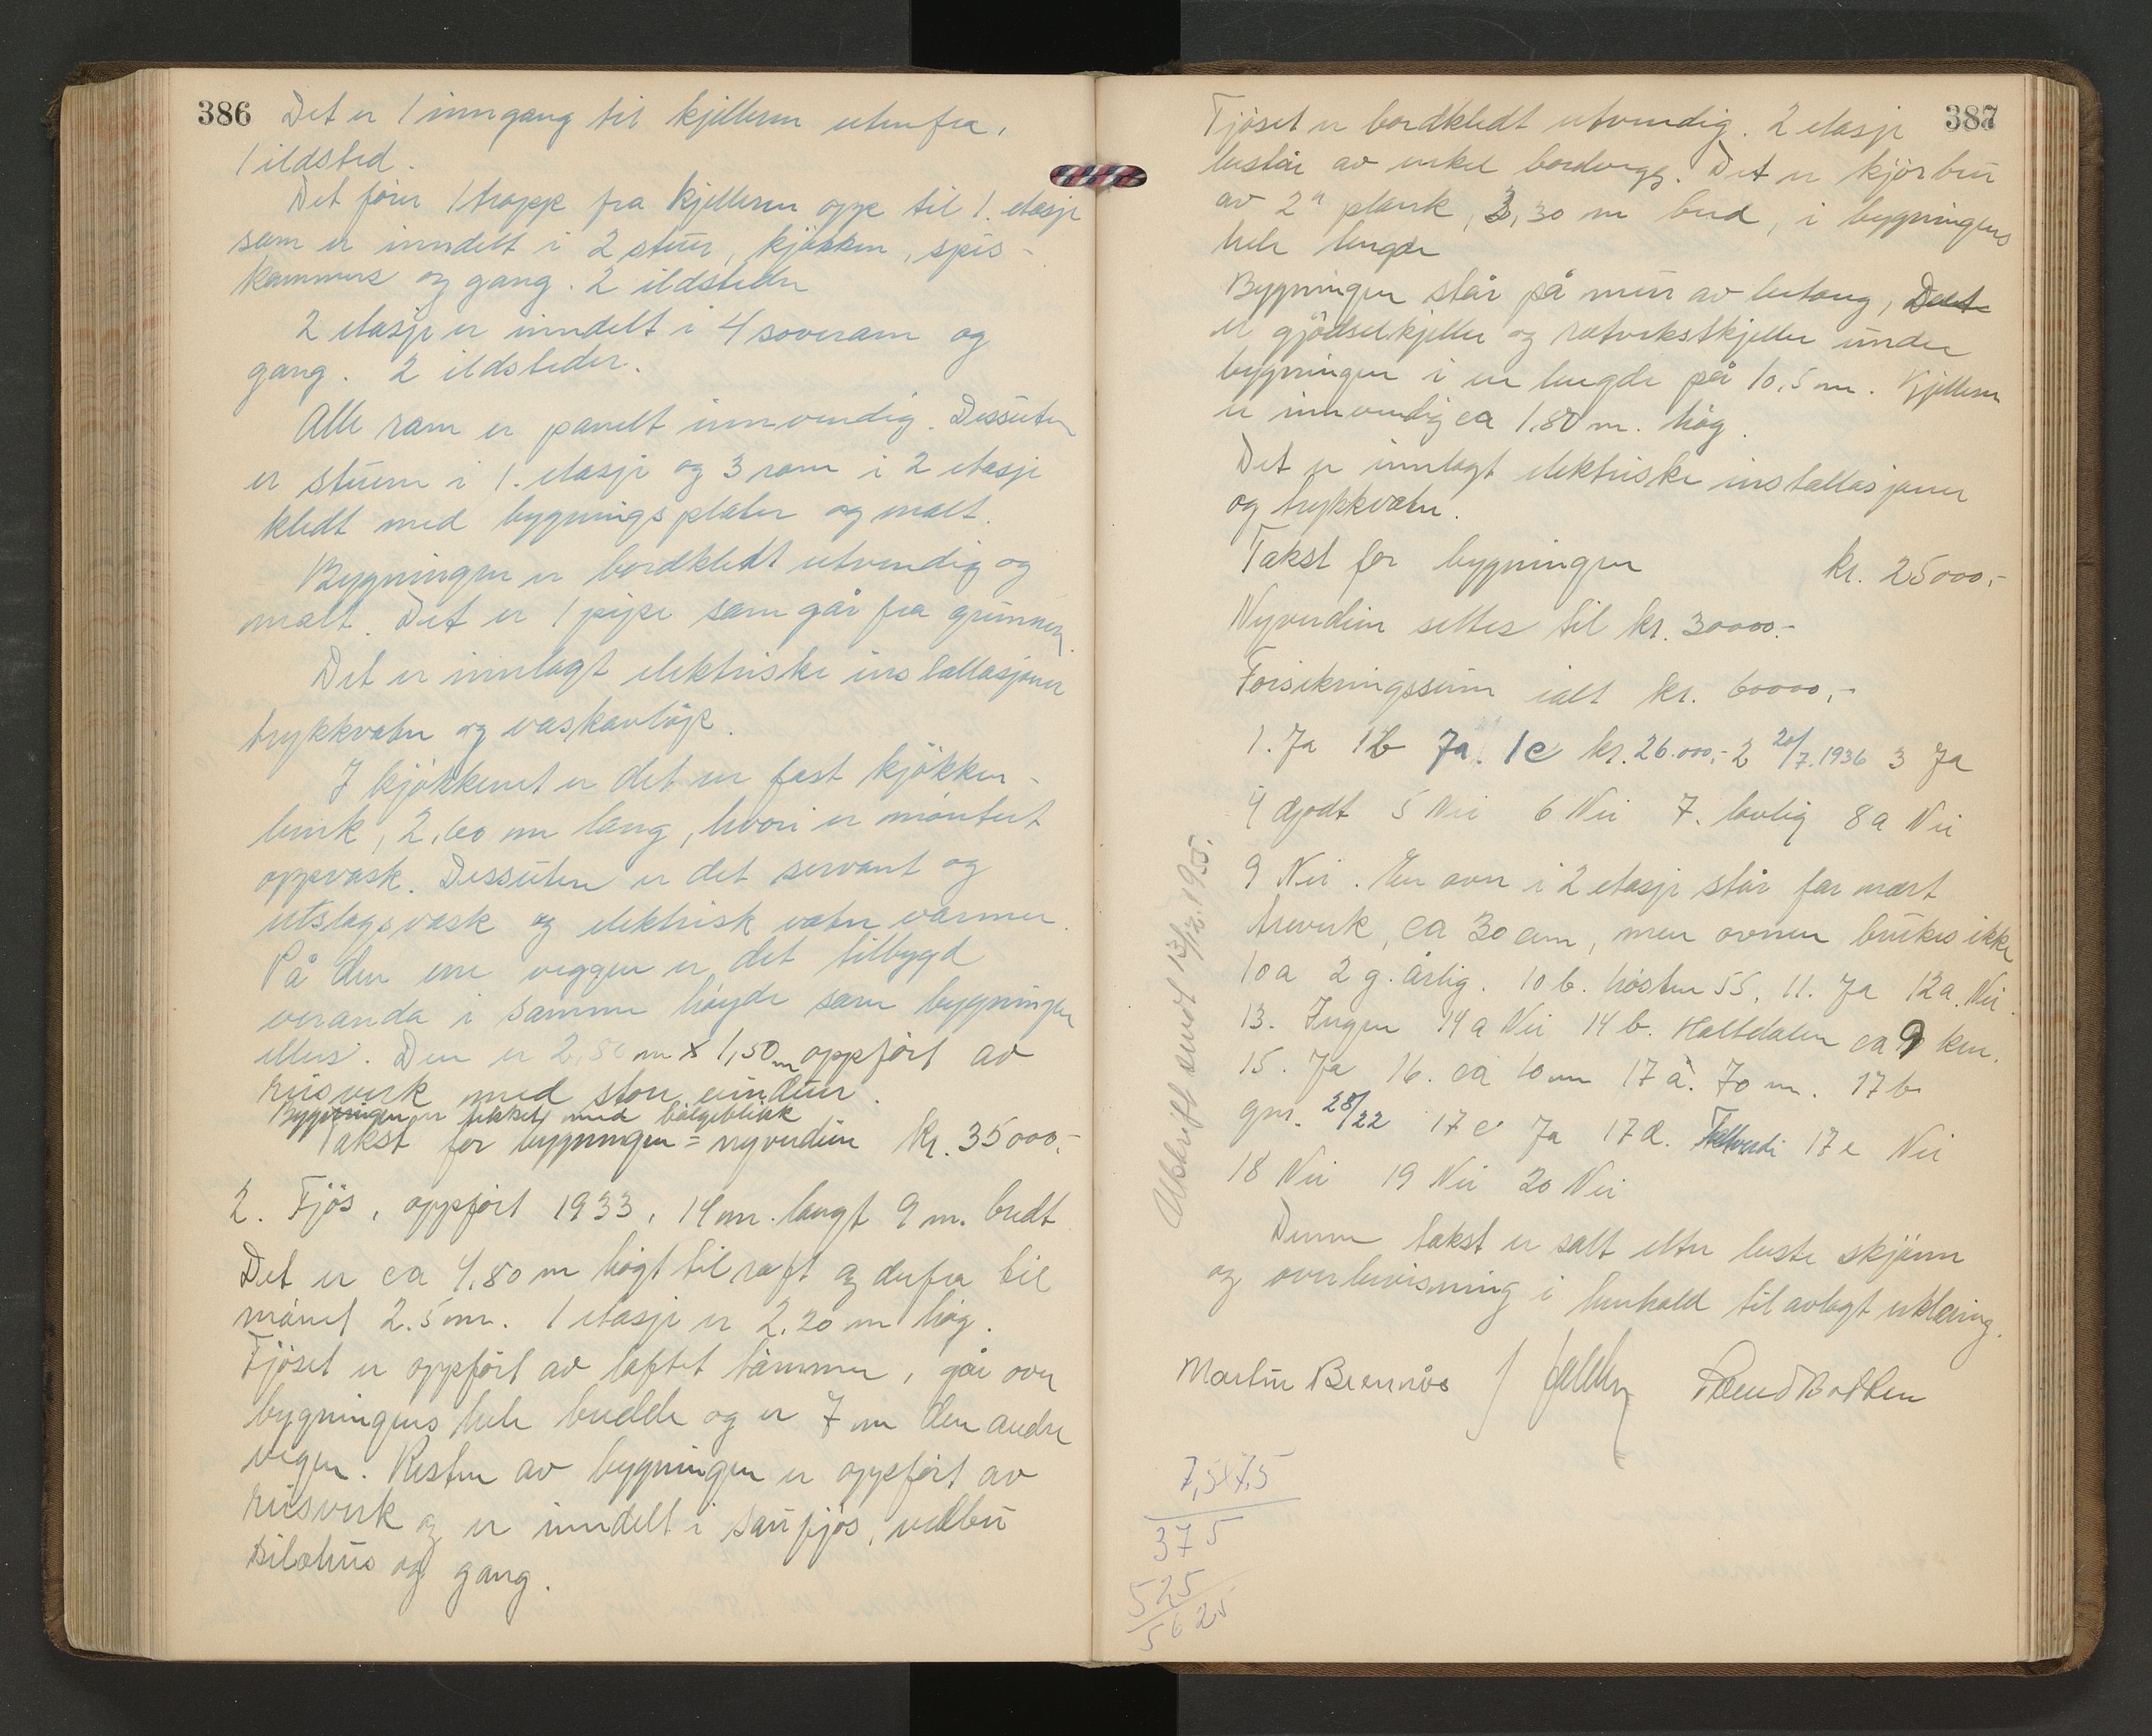 386
Det er 1 inngang til kjelleren utenfra,
1 ildsted.
Det fører 1 trapp fra kjelleren opp til 1. etasje
som er inndelt i 2 stuer, kjøkken, spis-
kammers og gang. 2 ildsteder
2 etasje er inndelt i 4 soverom og
gang. 2 ildsteder.
Alle rom er panelt innvendig. Dessuten
er stuen i 1. etasje og 3 rom i 2 etasje
kledt med bygningsplater og malt.
Bygningen er bordkledt utvendig og
malt. Det er 1 pipe som går fra grunnen
Det er innlagt elektriske installasjoner
trykkvatn og vaskavløp.
I kjøkkenet er det en fast kjøkken-
benk, 2,60 m lang, hvori er montert
oppvask. Dessuten er det servant og
utslagsvask og elektrisk vatn varmer.
På den ene veggen er det tilbygd
veranda i samme høyde som bygningen
ellers. Den er 2,50 m x 1,50 m oppført av
reisverk med store vinduer.
Bygningen er tekket med bølgeblikk
Takst for bygningen = nyverdien kr. 35000.-
2. Fjøs, oppført 1933, 14 m. langt 9 m. bredt
Det er ca 4,80 m høgt til raft og derfra til
mønet 2.5 m. 1 etasje er 2,20 m høg.
Fjøset er oppført av laftet tømmer, går over
bygningens hele bredde og er 7 m den andre
vegen. Resten av bygningen er oppført av
reisverk og er inndelt i saufjøs, vedbu
og gang.
387
Fjøset er bordkledt utvendig. 2 etasje
består av enkel bordvegg. Det er kjørbru
av 2" plank, 3,30 m bred, i bygningens
hele lengde
Bygningen står på mur av betong, Det
er gjødselkjeller og rotvekstkjeller under
bygningen i en lengde på 10,5 m. Kjelleren
er innvendig ca 1,80 m. høg.
Det er innlagt elektriske installasjoner
og trykkvatn.
Takst for bygningen kr. 25000,-
Nyverdien settes til kr. 30000.-
Forsikringssum ialt kr. 60000,-
1. Ja 1b Ja. 1c kr. 26.000,- 2 20/7.1936 3 Ja
4 godt 5 Nei 6 Nei 7. lovlig 8a Nei
9 Nei. En ovn i 2 etasje står for nært
treverk, ca 30 cm, men ovnen brukes ikke
10a 2 g. årlig. 10 b. høsten 55. 11. Ja 12a. Nei.
13. Ingen 14a Nei 14 b. Haltdalen ca 9 km.
15. Ja 16. ca 10 m 17 a. 70 m. 17 b
gnr. 28/22 17 c Ja 17 d. 17 e Nei
18 Nei 19 Nei 20 Nei
Denne takst er satt etter beste skjønn
og overbevisning i henhold til avlagt erklæring.
Martin Brennås
Avskrift sendt 13/12.1955.
7,5x7,5
375
525
5625